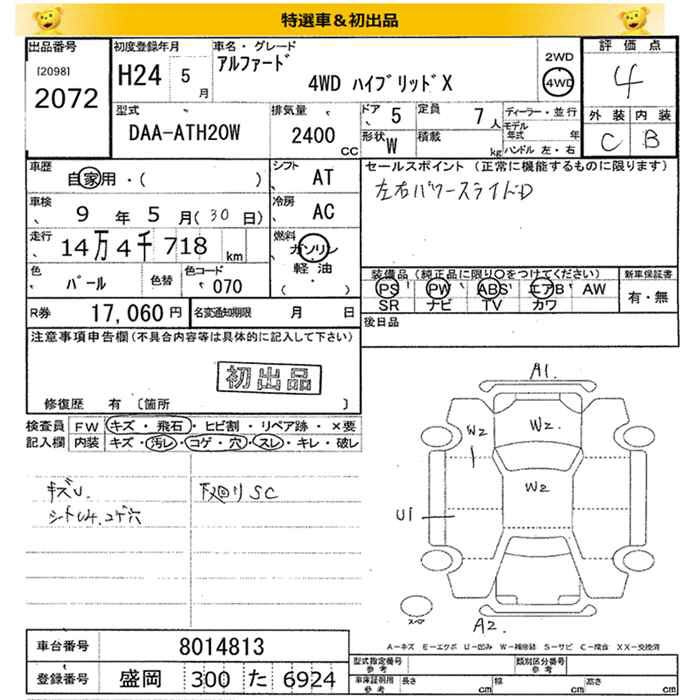 特選車＆初出品
出品番号 初度登録年月 車名・グレード 2WD 評価点
[2098] H24 5月 アルファード 4WD 4
2072 4WD ハイブリッドX
型式 排気量 ドア 5 定員 7人 ディーラー・並行 外装 内装
DAA-ATH20W 2400cc 形状 W 積載 kg モデル年式 年 C B
ハンドル 左・右
車歴 自家用・( ) シフト AT セールスポイント (正常に機能するものに限ります)
車検 9年 5月 (30日) 冷房 AC 左右パワースライドD
走行 14万4千718km 燃料 ガソリン
軽油
( ・ )
色 パール 色替 色コード 070 装備品 (純正品に限り○をつけてください) 新車保証書
PS PW ABS エアB AW 有・無
SR ナビ TV カワ
R券 17,060円 名変通知期限 月 日 後日品
注意事項申告欄 (不具合内容等は具体的に記入して下さい)
初出品
修復歴 有 〔箇所 〕
検査員 FW キズ・飛石・ヒビ割・リペア跡・×要
記入欄 内装 キズ・汚レ・コゲ・穴・スレ・キレ・破レ
キズU. 下廻りSC
コゲ穴
A1.
W2
W2
W2
U1
スペア
A2.
A=キズ E=エクボ U=凹み W=補修跡 S=サビ C=腐食 XX=交換済
車台番号 8014813
登録番号 盛岡 300 た 6924
型式指定番号 参考 類別区分番号 参考
車庫証明用 参考 長さ cm 幅 cm 高さ cm